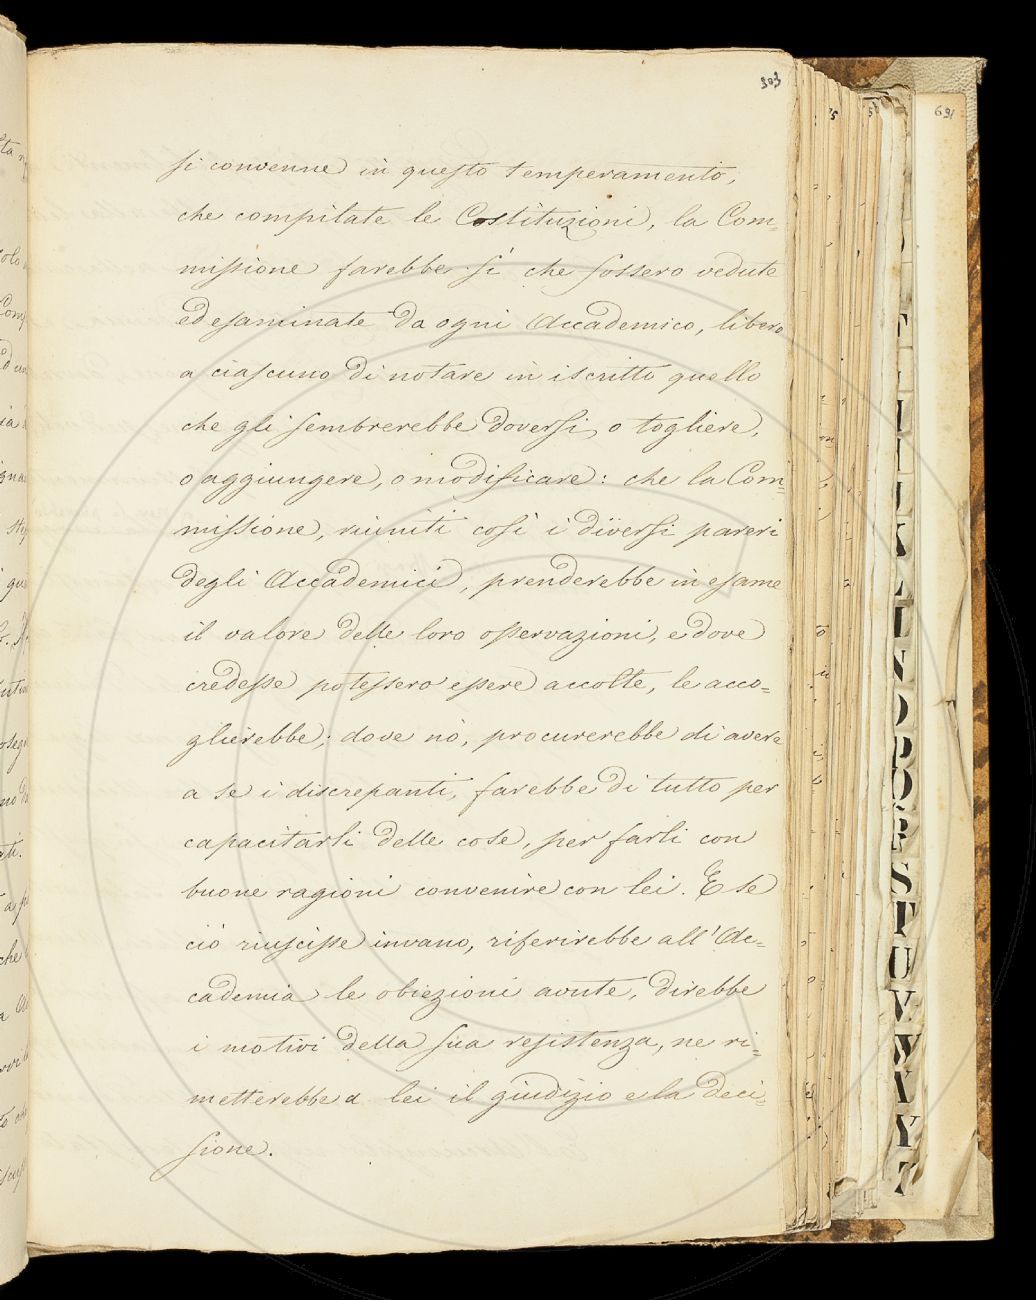 303
si convenne in questo temperamento,
che compilate le Costituzioni, la Com=
missione farebbe sì che fossero vedute
ed esaminate da ogni Accademico, libero
a ciascuno di notare in iscritto quello
che gli sembrerebbe doversi, o togliere,
o aggiungere, o modificare: che la Com=
missione, riuniti così i diversi pareri
degli Accademici, prenderebbe in esame
il valore delle loro osservazioni, e dove
credesse potessero essere accolte, le acco=
glierebbe; dove nò, procurerebbe di avere
a se i discrepanti, farebbe di tutto per
capacitarli delle cose, per farli con
buone ragioni convenire con lei. E se
ciò riuscisse invano, riferirebbe all'Ac=
cademia le obiezioni avute, direbbe
i motivi della sua resistenza, ne ri=
metterebbe a lei il giudizio e la deci=
sione.
691